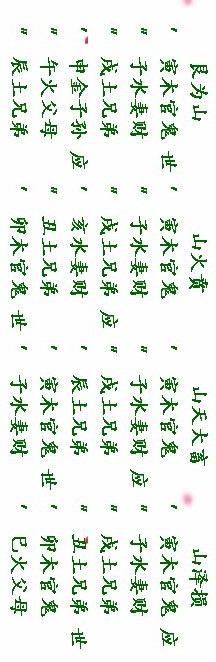 艮为山
' 寅木官鬼 世
" 子水妻财
" 戌土兄弟
' 申金子孙 应
" 午火父母
" 辰土兄弟
山火贲
' 寅木官鬼
" 子水妻财
" 戌土兄弟 应
' 亥水妻财
" 丑土兄弟
' 卯木官鬼 世
山天大畜
' 寅木官鬼
" 子水妻财 应
" 戌土兄弟
' 辰土兄弟
' 寅木官鬼 世
' 子水妻财
山泽损
' 寅木官鬼 应
" 子水妻财
" 戌土兄弟
" 丑土兄弟 世
' 卯木官鬼
' 巳火父母